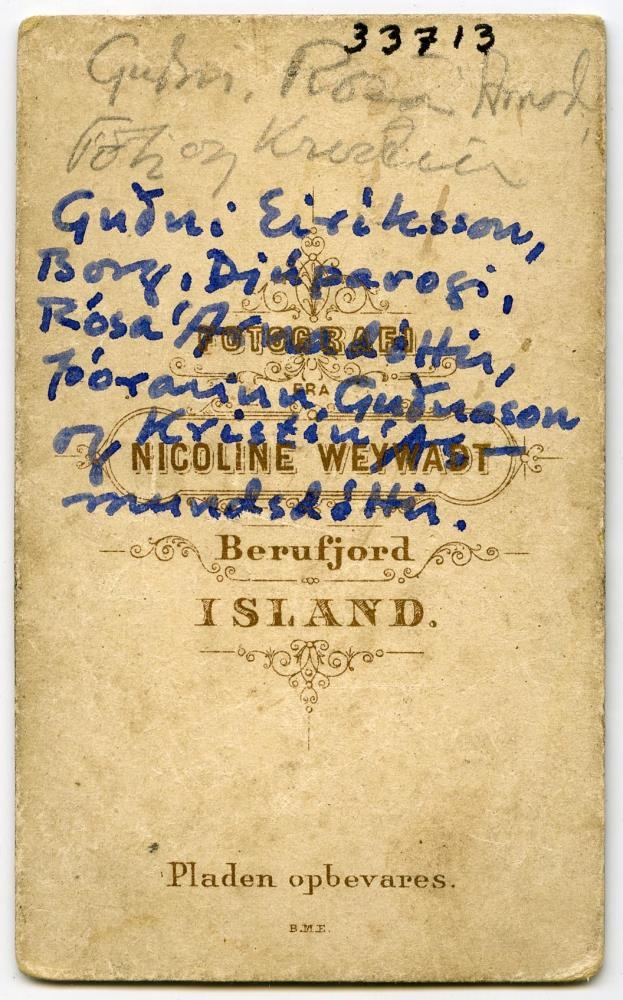 33713
Guðni, Rósa Arnad,
og Kristín
Guðni Eiríksson,
Borg, Djúpavogi,
Rósa Árnadóttir,
Þórarinn Guðnason
og Kristín Ás-
mundsdóttir.
FOTOGRAFI
FRA
NICOLINE WEYWADT
Berufjord
ISLAND.
Pladen opbevares.
B.M.E.